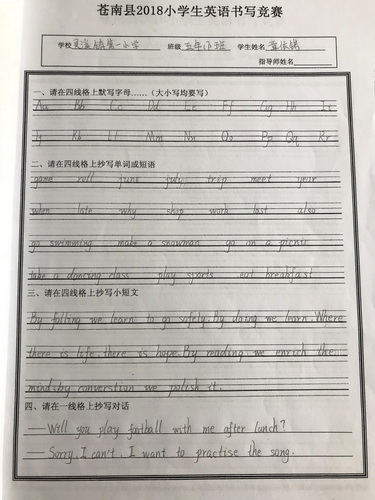 苍南县2018小学生英语书写竞赛
学校 第一小学 班级 五年 班 学生姓名
指导师姓名
一、请在四线格上默写字母……（大小写均要写）
Aa Bb Cc Dd Ee Ff Gg Hh Ii
Jj Kk Ll Mm Nn Oo Pp Qq Rr
二、请在四线格上抄写单词或短语
game roll june july trip meet year
when late why shop work last also
go swimming make a snowman go on a picnic
take a dancing class play sports eat breakfast
三、请在四线格上抄写小短文
By falling we learn to go safely. By doing we learn. Where
there is life, there is hope. By reading we enrich the
mind; by converstion we polish it.
四、请在一线格上抄写对话
—Will you play football with me after lunch?
—Sorry, I can't. I want to practise the song.